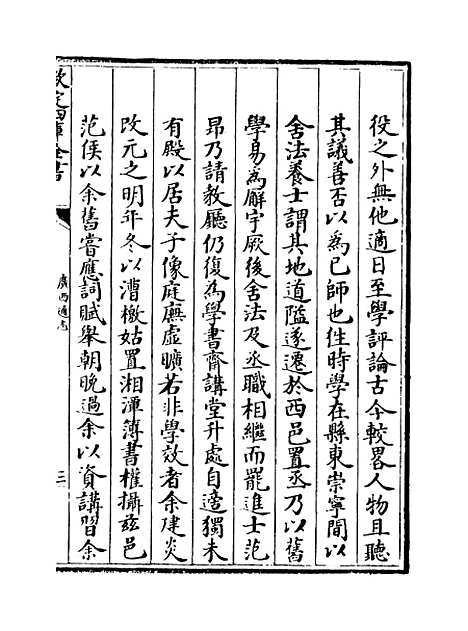 役之外無他適日至學評論古今較畧人物且聽
其議善否以為已師也徃時學在縣東崇寧間以
舍法養士謂其地道隘遂遷於西邑置丞乃以舊
學易為廨宇厥後舍法及丞職相繼而罷進士范
昻乃請教廳仍復為學書齋講堂升處自適獨未
有殿以居夫子像庭廡虛曠若非學效者余建炎
改元之明年冬以漕檄姑置湘潭簿書權攝兹邑
范侯以余舊嘗應詞賦舉朝晚過余以資講習余
欽定四庫全書
廣西通志
三